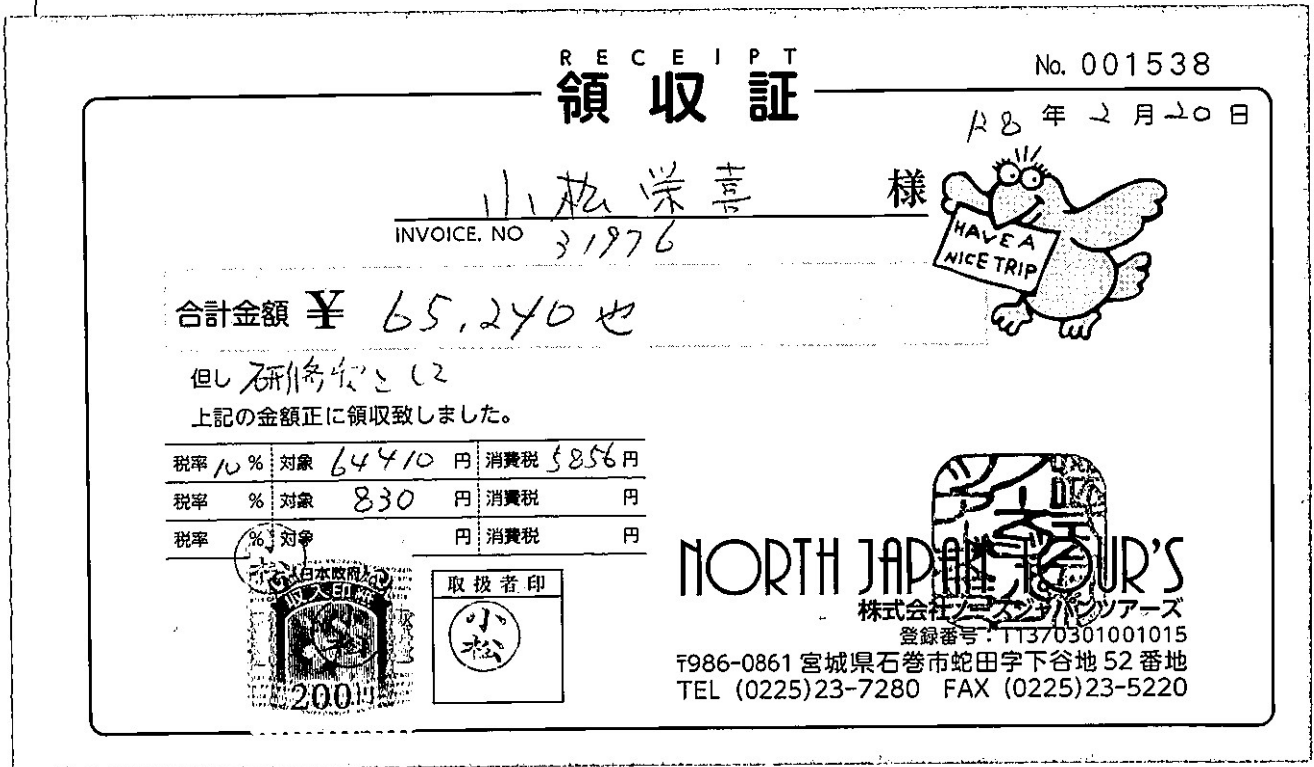 RECEIPT
領収証
No. 001538
R8年2月20日
小松栄喜 様
INVOICE. NO 31976
HAVE A
NICE TRIP
合計金額 ¥ 65,240也
但し 研修代として
上記の金額正に領収致しました。
税率 10 % 対象 64410 円 消費税 5856円
税率 % 対象 830 円 消費税 円
税率 % 対象 円 消費税 円
日本政府
収入印紙
200円
取扱者印
小松
NORTH JAPAN TOUR'S
株式会社ノースジャパンツアーズ
登録番号:T1370301001015
〒986-0861 宮城県石巻市蛇田字下谷地 52 番地
TEL (0225)23-7280 FAX (0225)23-5220